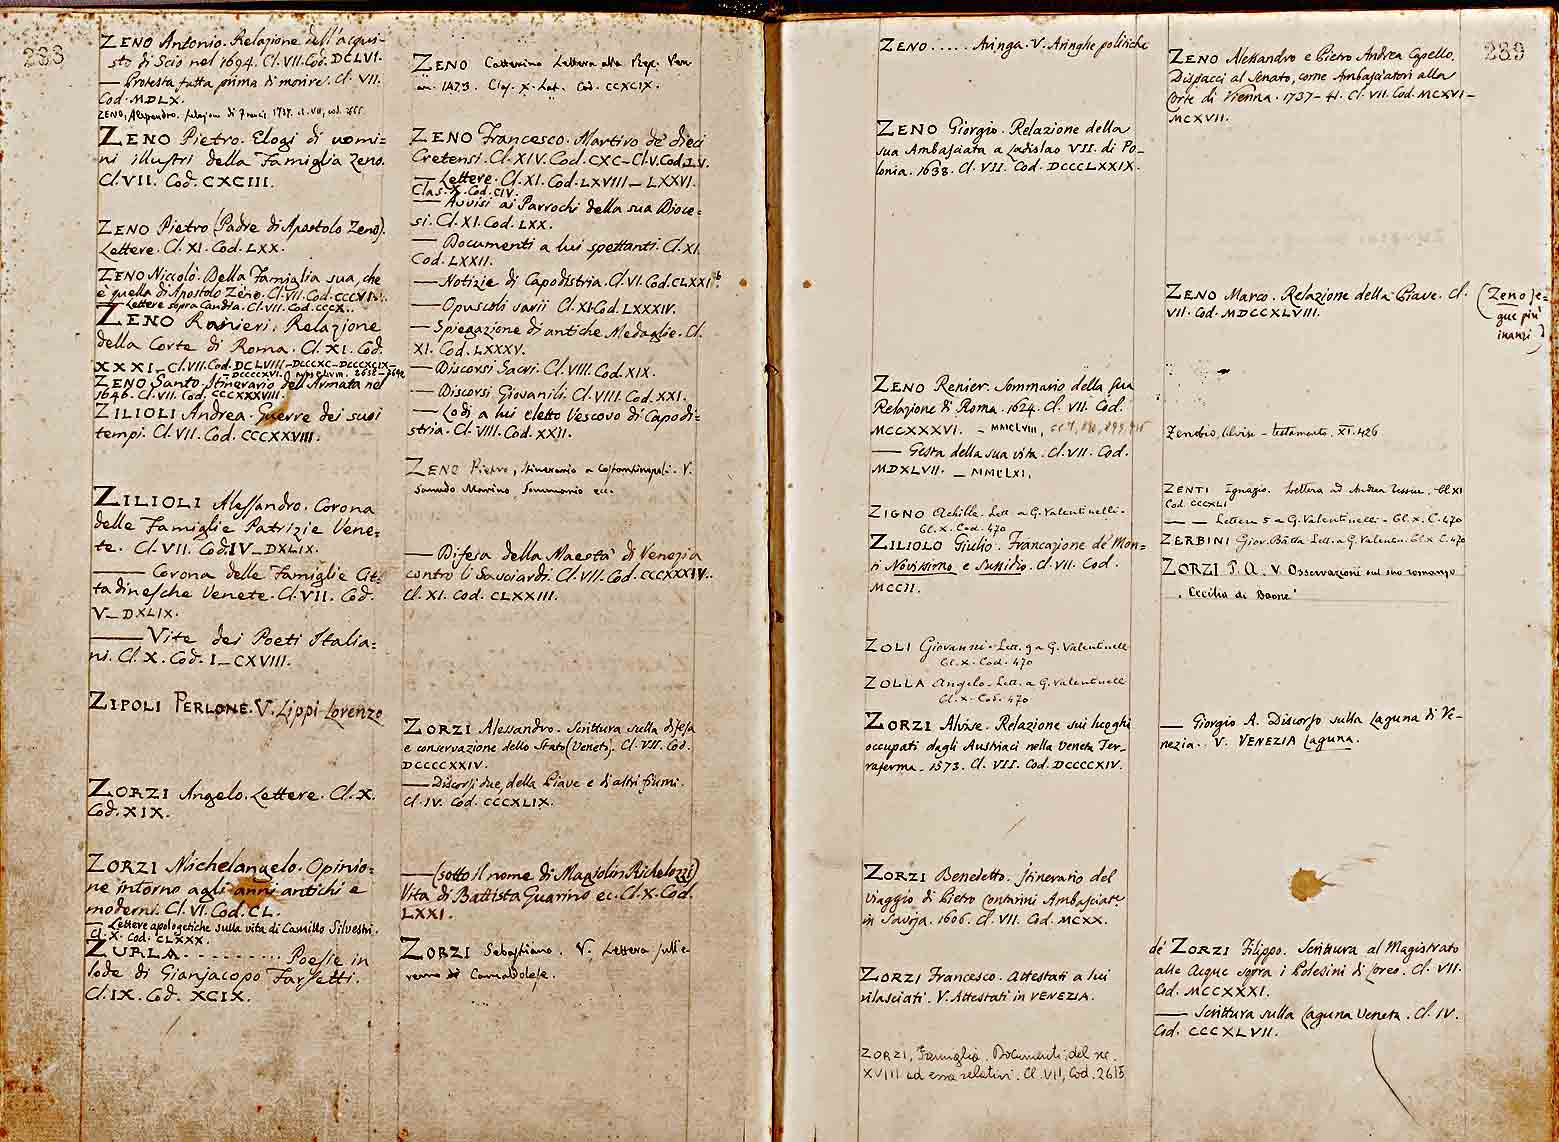 288
ZENO Antonio. Relazione dell'acqui-
sto di Scio nel 1694. Cl. VII. Cod. DCLVI.
— Protesta fatta prima di morire. Cl. VII.
Cod. MDLX.
ZENO, Alessandro. Relazione di Franc. 1737. cl. VII, cod.
ZENO Pietro. Elogi di uomi=
ni illustri della Famiglia Zeno.
Cl. VII. Cod. CXCIII.
ZENO Pietro (Padre di Apostolo Zeno).
Lettere. Cl. XI. Cod. LXX.
ZENO Niccolò. Della Famiglia sua, che
è quella di Apostolo Zeno. Cl. VII. Cod. CCCVI.
— Lettere sopra Candia. Cl. VII. Cod. CCCX.
ZENO Ranieri. Relazione
della Corte di Roma. Cl. XI. Cod.
XXXI — Cl. VII. Cod. DCLVIII — DCCCXC — DCCCXCIX —
— DCCCCXVI.
ZENO Santo. Itinerario dell'Armata nel
1646. Cl. VII. Cod. CCCXXXVIII.
ZILIOLI Andrea. Guerre dei suoi
tempi. Cl. VII. Cod. CCCXXVIII.
ZILIOLI Alessandro. Corona
delle Famiglie Patrizie Vene=
te. Cl. VII. Cod. IV — DXLIX.
— Corona delle Famiglie Cit=
tadinesche Venete. Cl. VII. Cod.
V — DXLIX.
— Vite dei Poeti Italia=
ni. Cl. X. Cod. I — CXVIII.
ZIPOLI PERLONE. V. Lippi Lorenzo
ZORZI Angelo. Lettere. Cl. X.
Cod. XIX.
ZORZI Michelangelo. Opinio=
ne intorno agli anni antichi e
moderni. Cl. VI. Cod. CL.
— Lettere apologetiche sulla vita di Camillo Silvestri.
Cl. X. Cod. CLXXX.
ZURLA .......... Poesie in
lode di Gianjacopo Farsetti.
Cl. IX. Cod. XCIX.
ZENO Catterino Lettera alla Rep. Ven.
an. 1473. Clas. X. Lat. Cod. CCXCIX.
ZENO Francesco. Martiro de' dieci
Cretensi. Cl. XIV. Cod. CXC — Cl. V. Cod. LV.
— Lettere. Cl. XI. Cod. LXVIII — LXXVI.
Clas. X. Cod. CIV.
— Avvisi ai Parrochi della sua Dioce=
si. Cl. XI. Cod. LXX.
— Documenti a lui spettanti. Cl. XI.
Cod. LXXII.
— Notizie di Capodistria. Cl. VI. Cod. CLXXI b.
— Opuscoli varii Cl. XI. Cod. LXXXIV.
— Spiegazione di antiche Medaglie. Cl.
XI. Cod. LXXXV.
— Discorsi Sacri. Cl. VIII. Cod. XIX.
— Discorsi Giovanili. Cl. VIII. Cod. XXI.
— Lodi a lui eletto Vescovo di Capodi=
stria. Cl. VIII. Cod. XXII.
ZENO Pietro, Itinerario a Costantinopoli. V.
Sanudo Marino, Sommario ecc.
— Difesa della Maestà di Venezia
contro li Sauciardi. Cl. VII. Cod. CCCXXXIV.
Cl. XI. Cod. CLXXIII.
ZORZI Alessandro. Scrittura sulla difesa
e conservazione dello Stato (Veneto). Cl. VII. Cod.
DCCCCXXIV.
— Discorsi due, della Piave e d'altri fiumi.
Cl. IV. Cod. CCCXLIX.
— (sotto il nome di Magiolin Richelozzi)
Vita di Battista Guarino ec. Cl. X. Cod.
LXXI.
ZORZI Sebastiano. V. Lettera sull'e-
remo di Camaldolese.
ZENO ..... Aringa. V. Aringhe politiche
ZENO Giorgio. Relazione della
sua Ambasciata a Ladislao VII. di Po-
lonia. 1638. Cl. VII. Cod. DCCCLXXIX.
ZENO Renier. Sommario della sua
Relazione di Roma. 1624. Cl. VII. Cod.
MCCXXXVI. — MMCLVIII,
— Gesta della sua vita. Cl. VII. Cod.
MDXLVII. — MMCLXI.
ZIGNO Achille. Lett. a G. Valentinelli.
Cl. X. Cod. 470
ZILIOLO Giulio. Francazione de' Mon=
ti Novissimo e Sussidio. Cl. VII. Cod.
MCCII.
ZOLI Giovanni. Lett. 9 a G. Valentinelli
Cl. X. Cod. 470
ZOLLA Angelo. Lett. a G. Valentinelli
Cl. X. Cod. 470
ZORZI Alvise. Relazione sui luoghi
occupati dagli Austriaci nella Veneta Ter-
raferma. 1573. Cl. VII. Cod. DCCCCXIV.
ZORZI Benedetto. Itinerario del
viaggio di Pietro Contarini Ambasciat.e
in Savoja. 1606. Cl. VII. Cod. MCXX.
ZORZI Francesco. Attestati a lui
rilasciati. V. Attestati in VENEZIA.
ZORZI, Famiglia. Documenti del sec.
XVIII ad essa relativi. Cl. VII, Cod. 2615
289
ZENO Alessandro e Pietro Andrea Capello.
Dispacci al Senato, come Ambasciatori alla
Corte di Vienna. 1737–41. Cl. VII. Cod. MCXVI —
MCXVII.
ZENO Marco. Relazione della Piave. Cl.
VII. Cod. MDCCXLVIII.
(Zeno se-
gue più
inanzi)
Zenobio, Alvise – testamento. XI. 426
ZENTI Ignazio. Lettera ad Andrea Tessier. Cl. XI
Cod. CCCXLI
— — Lettere 5 a G. Valentinelli. Cl. X. C. 470
ZERBINI Giov. Batta Lett. a G. Valentin. Cl. X C. 470
ZORZI P. A. V. Osservazioni sul suo romanzo
"Cecilia di Baone"
— Giorgio A. Discorso sulla Laguna di Ve-
nezia. V. VENEZIA Laguna.
de' ZORZI Filippo. Scrittura al Magistrato
alle Acque sopra i Polesini di Loreo. Cl. VII.
Cod. MCCXXXI.
— Scrittura sulla Laguna Veneta. Cl. IV.
Cod. CCCXLVII.